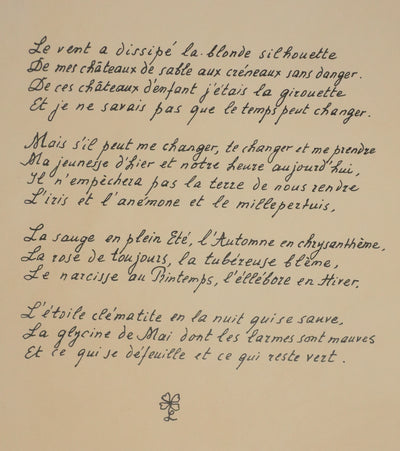 Le vent a dissipé la blonde silhouette
De mes châteaux de sable aux créneaux sans danger.
De ces châteaux d'enfant j'étais la girouette
Et je ne savais pas que le temps peut changer.
Mais s'il peut me changer, te changer et me prendre
Ma jeunesse d'hier et notre heure aujourd'hui,
Il n'empêchera pas la terre de nous rendre
L'iris et l'anémone et le millepertuis,
La sauge en plein Eté, l'Automne en chrysanthème,
La rose de toujours, la tubéreuse blême,
Le narcisse au Printemps, l'éllébore en Hiver,
L'étoile clématite en la nuit qui se sauve,
La glycine de Mai dont les larmes sont mauves
Et ce qui se défeuille et ce qui reste vert.